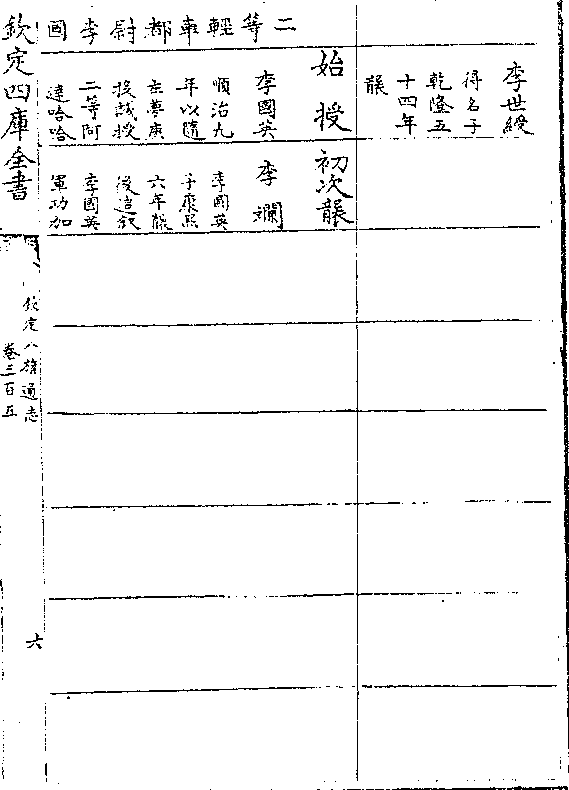 李世綬
得名子
乾隆五
十四年
襲
二等輕車都尉李國
始授
李國英
順治九
年以隨
左夢庚
投誠授
二等阿
達哈哈
初次襲
李
李國英
子康熙
六年襲
後追敘
李國英
軍功加
欽定四庫全書
欽定八旗通志
卷三百五
六